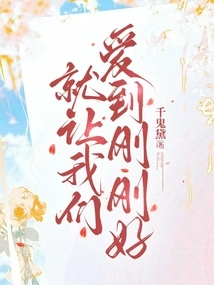 就让我们
爱到刚刚好
千鬼黛 著